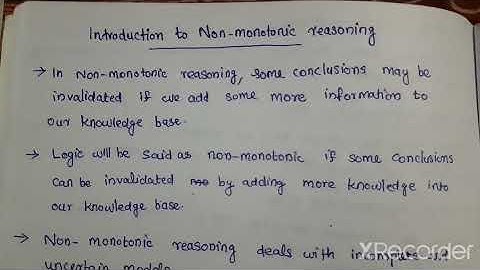 Introduction to Non-monotonic reasoning
→ In Non-monotonic reasoning, some conclusions may be
invalidated if we add some more information to
our knowledge base.
→ Logic will be said as non-monotonic if some conclusions
can be invalidated by adding more knowledge into
our knowledge base.
→ Non-monotonic reasoning deals with incomplete
uncertain models
XRecorder